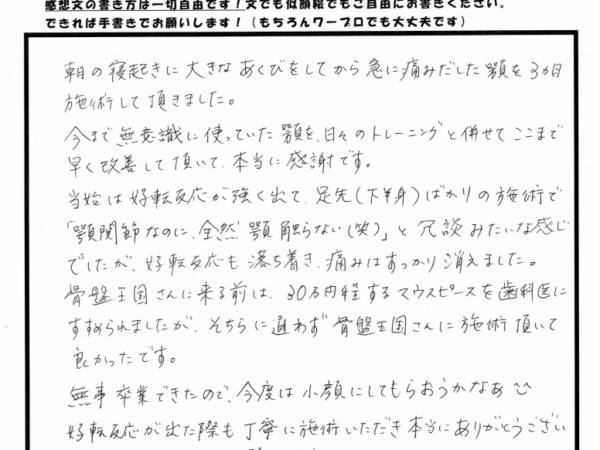 感想文の書き方は一切自由です！文でも似顔絵でもご自由にお書きください。
できれば手書きでお願いします！（もちろんワープロでも大丈夫です）
朝の寝起きに大きなあくびをしてから急に痛みだした顎を3カ月
施術して頂きました。
今まで無意識に使っていた顎を、日々のトレーニングと併せてここまで
早く改善して頂いて、本当に感謝です。
当始は好転反応が強く出て、足先（下半身）ばかりの施術で
「顎関節なのに、全然顎触らない（笑）」と冗談みたいな感じ
でしたが、好転反応も落ち着き、痛みはすっかり消えました。
骨盤王国さんに来る前は、30万円程するマウスピースを歯科医に
すすめられましたが、そちらに通わず骨盤王国さんに施術頂いて
良かったです。
無事卒業できたので、今度は小顔にしてもらおうかなあ
好転反応が出た際も丁寧に施術いただき本当にありがとうござい